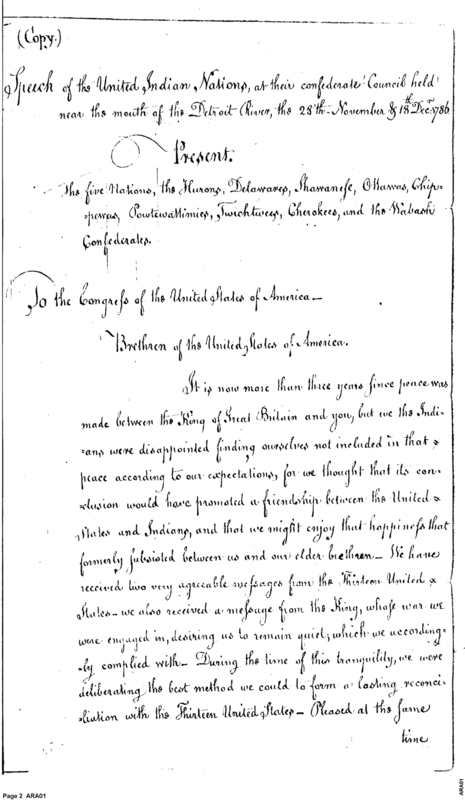 (Copy.)
Speech of the United Indian Nations, at their confederate Council held
near the mouth of the Detroit River, the 28th November & 18th Decr 1786
Present.
The five Nations, the Hurons, Delawares, Shawanese, Ottawas, Chip-
=pewas, Powtewattimies, Twichtwees, Cherokees, and the Wabash
Confederates.
To the Congress of the United States of America—
Brethren of the United States of America.
It is now more than three years since peace was
made between the King of Great Britain and you, but we the Indi-
=ans were disappointed finding ourselves not included in that
peace according to our expectations, for we thought that its con-
=clusion would have promoted a friendship between the United
States and Indians, and that we might enjoy that happiness that
formerly subsisted between us and our elder brethren— We have
received two very agreeable messages from the Thirteen United
States— we also received a message from the King, whose war we
were engaged in, desiring us to remain quiet, which we according-
=ly complied with— During the time of this tranquility, we were
deliberating the best method we could to form a lasting reconci-
=liation with the Thirteen United States— Pleased at the same
time
Page 2 ARA01
ARA01